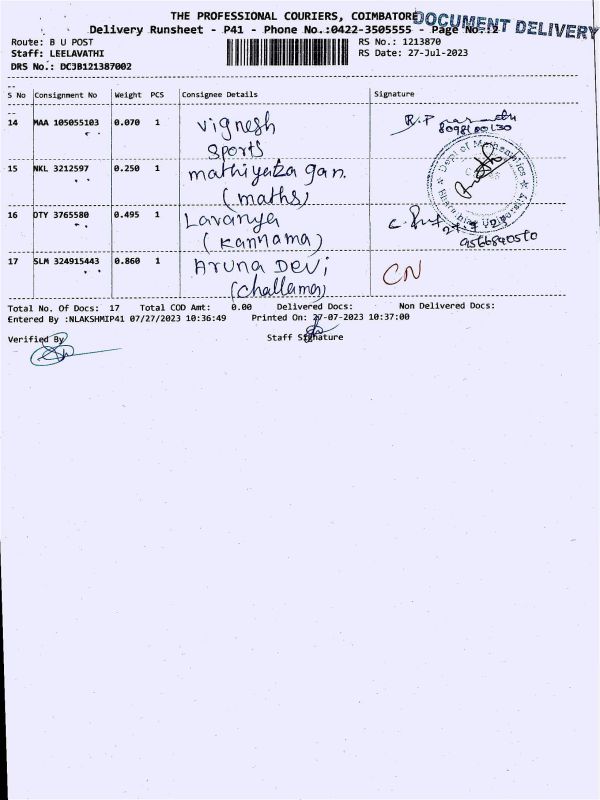 THE PROFESSIONAL COURIERS, COIMBATORE
DOCUMENT DELIVERY
Delivery Runsheet - P41 - Phone No.:0422-3505555 - Page No.:2
Route: B U POST RS No.: 1213870
Staff: LEELAVATHI RS Date: 27-Jul-2023
DRS No.: DCJB121387002
S No Consignment No Weight PCS Consignee Details Signature
14 MAA 105055103 0.070 1 Vignesh
Sports
15 NKL 3212597 0.250 1 mathiyaza gan.
(maths)
Dept of Mathematics
16 DTY 3765580 0.495 1 Lavanya
(Kannama)
9566840560
17 SLM 324915443 0.860 1 Aruna Devi
(challama) CN
Total No. Of Docs: 17 Total COD Amt: 0.00 Delivered Docs: Non Delivered Docs:
Entered By :NLAKSHMIP41 07/27/2023 10:36:49 Printed On: 27-07-2023 10:37:00
Verified By Staff Signature